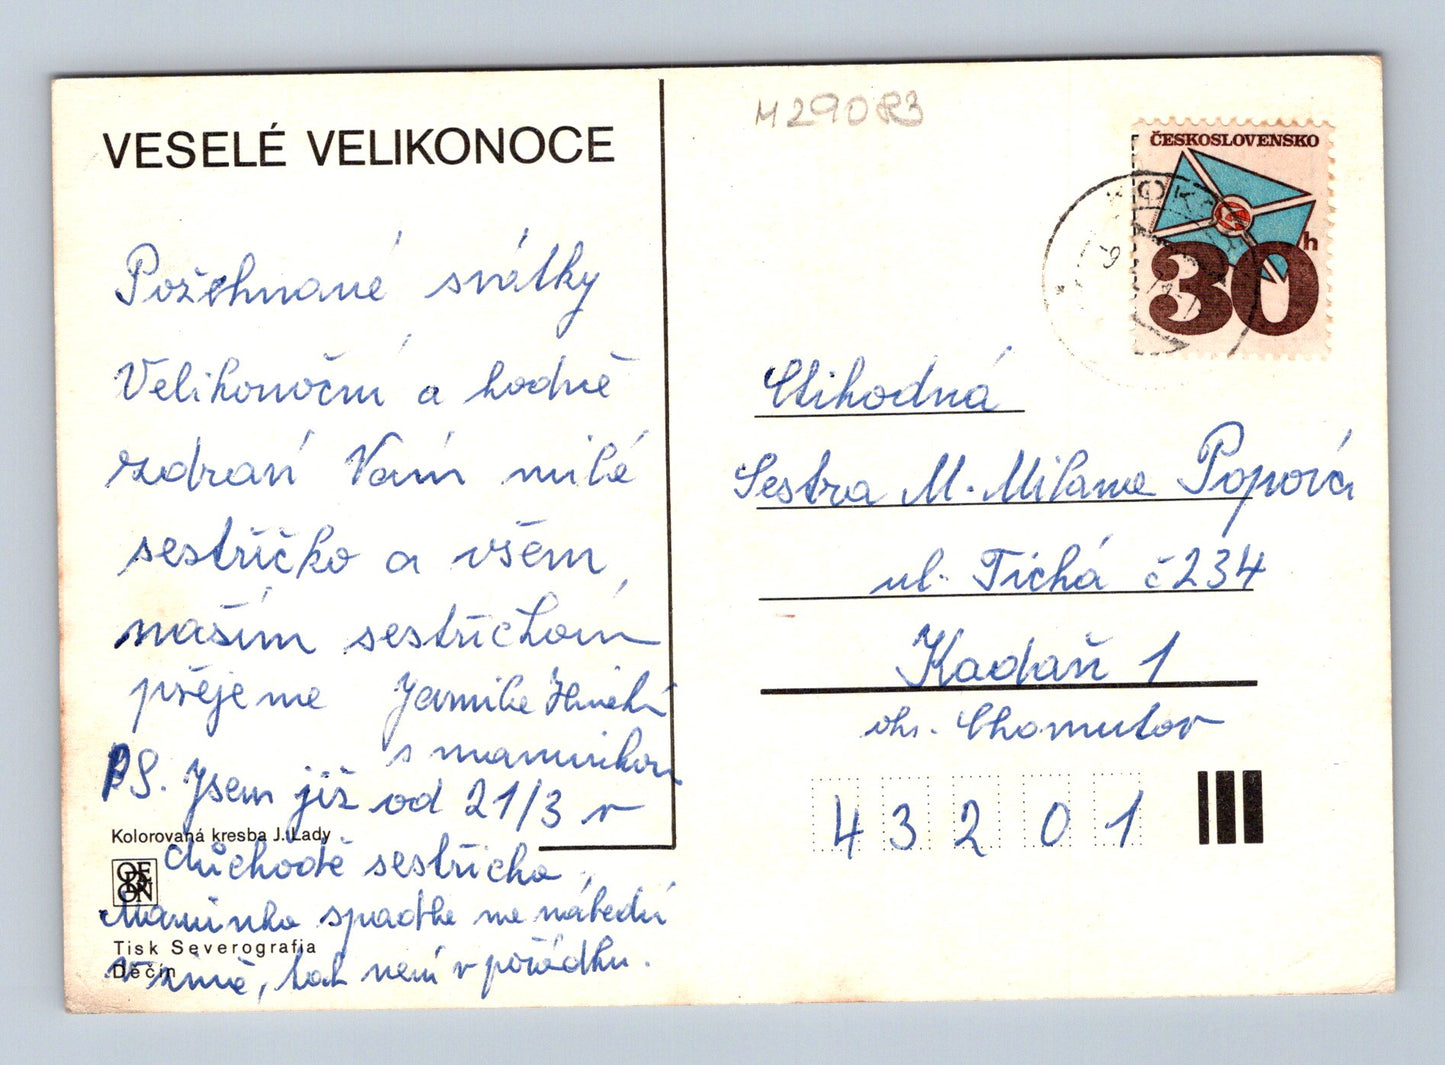 VESELÉ VELIKONOCE
Požehnané svátky
Velikonoční a hodně
zdraví Vám milé
sestřičko a všem
našim sestřičkám
přejeme Jarmila
s maminkou
PS. Jsem již od 21/3 v
důchodě sestřičko.
Maminka spadla na náledí
v zimě, tak není v pořádku.
Kolorovaná kresba J. Lady
ODEON
Tisk Severografia
Děčín
M290R3
ČESKOSLOVENSKO
30h
Ctihodná
Sestra M. Milana Popová
ul. Tichá č 234
Kadaň 1
okr. Chomutov
43201